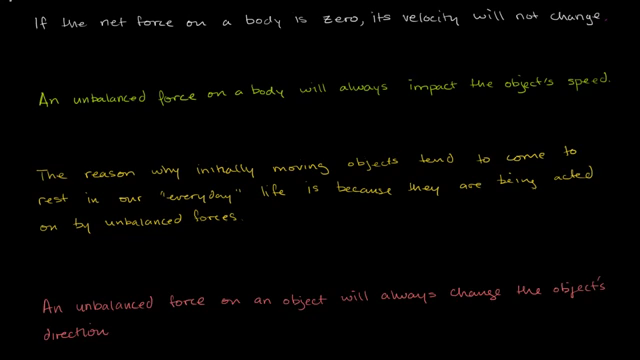 If the net force on a body is zero, its velocity will not change.
An unbalanced force on a body will always impact the object's speed.
The reason why initially moving objects tend to come to
rest in our "everyday" life is because they are being acted
on by unbalanced forces.
An unbalanced force on an object will always change the object's
direction